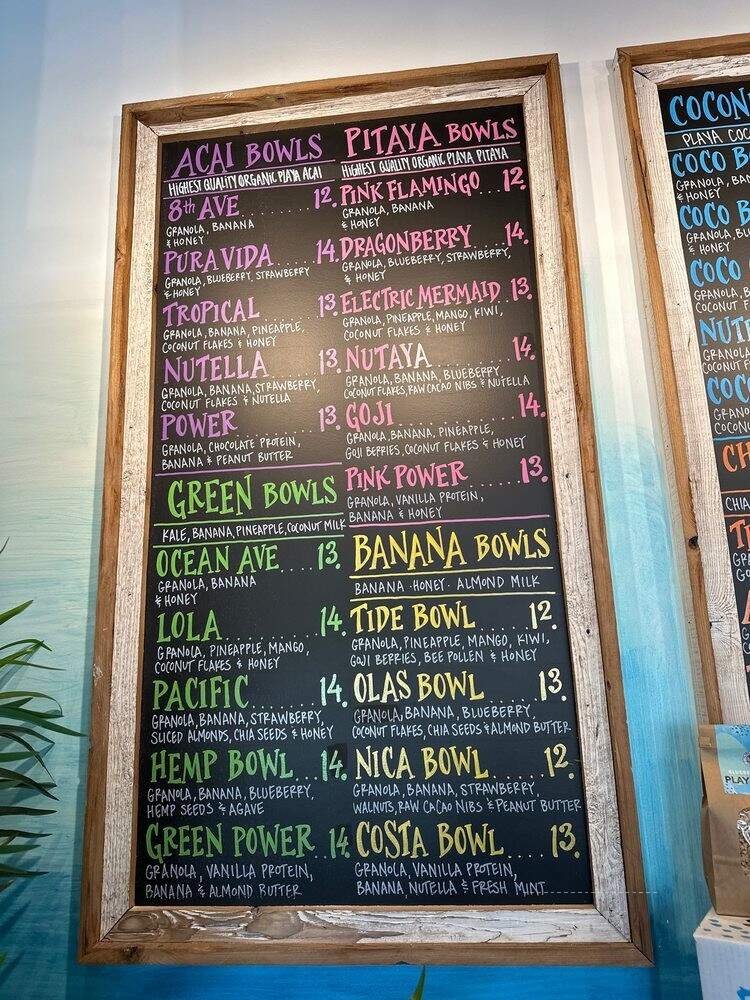 ACAI BOWLS
HIGHEST QUALITY ORGANIC PLAYA ACAI
8th AVE 12.
GRANOLA, BANANA
& HONEY
PURA VIDA 14.
GRANOLA, BLUEBERRY, STRAWBERRY
& HONEY
TROPICAL 13.
GRANOLA, BANANA, PINEAPPLE,
COCONUT FLAKES & HONEY
NUTELLA 13.
GRANOLA, BANANA, STRAWBERRY,
COCONUT FLAKES & NUTELLA
POWER 13.
GRANOLA, CHOCOLATE PROTEIN,
BANANA & PEANUT BUTTER
GREEN BOWLS
KALE, BANANA, PINEAPPLE, COCONUT MILK
OCEAN AVE 13.
GRANOLA, BANANA
& HONEY
LOLA 14.
GRANOLA, PINEAPPLE, MANGO,
COCONUT FLAKES & HONEY
PACIFIC 14.
GRANOLA, BANANA, STRAWBERRY,
SLICED ALMONDS, CHIA SEEDS & HONEY
HEMP BOWL 14.
GRANOLA, BANANA, BLUEBERRY,
HEMP SEEDS & AGAVE
GREEN POWER 14
GRANOLA, VANILLA PROTEIN,
BANANA & ALMOND BUTTER
PITAYA BOWLS
HIGHEST QUALITY ORGANIC PLAYA PITAYA
PINK FLAMINGO 12.
GRANOLA, BANANA
& HONEY
DRAGONBERRY 14.
GRANOLA, BLUEBERRY, STRAWBERRY,
& HONEY
ELECTRIC MERMAID 13.
GRANOLA, PINEAPPLE, MANGO, KIWI,
COCONUT FLAKES & HONEY
NUTAYA 14.
GRANOLA, BANANA, BLUEBERRY,
COCONUT FLAKES, RAW CACAO NIBS & NUTELLA
GOJI 14.
GRANOLA, BANANA, PINEAPPLE,
GOJI BERRIES, COCONUT FLAKES & HONEY
PINK POWER 13.
GRANOLA, VANILLA PROTEIN,
BANANA & HONEY
BANANA BOWLS
BANANA · HONEY · ALMOND MILK
TIDE BOWL 12.
GRANOLA, PINEAPPLE, MANGO, KIWI,
GOJI BERRIES, BEE POLLEN & HONEY
OLAS BOWL 13.
GRANOLA, BANANA, BLUEBERRY,
COCONUT FLAKES, CHIA SEEDS & ALMOND BUTTER
NICA BOWL 12.
GRANOLA, BANANA, STRAWBERRY,
WALNUTS, RAW CACAO NIBS & PEANUT BUTTER
COSTA BOWL 13.
GRANOLA, VANILLA PROTEIN,
BANANA, NUTELLA & FRESH MINT
PLAYA COC
COCO B
GRANOLA, BAN
& HONEY
COCO B
GRANOLA, BLU
& HONEY
COCO
GRANOLA, B
COCONUT F
GRANOLA
COCONUT F
GRANOLA
COCONU
CHIA